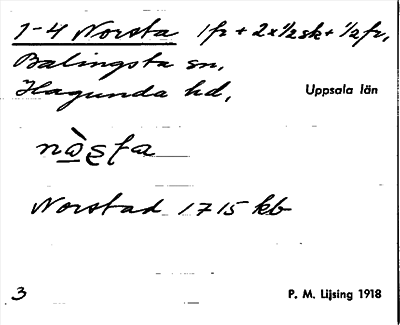 1-4 Norsta 1 fr + 2 x 1/2 sk + 1/2 fr,
Balingsta sn,
Hagunda hd,
Uppsala län
Norstad 1715 kb
3
P. M. Lijsing 1918